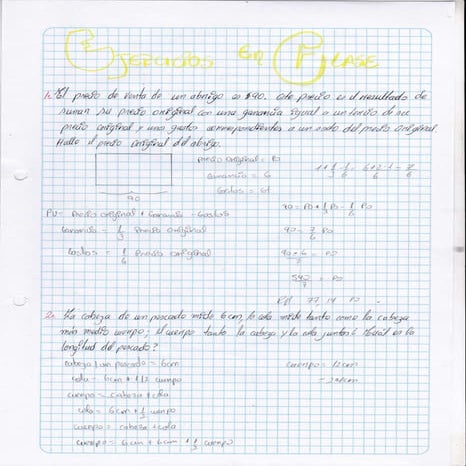 Ejercicios en Clase
1. El precio de venta de un abrigo es $90. Este precio es el resultado de
sumar su precio original con una ganancia igual a un tercio de su
precio original y unos gastos correspondientes a un sexto del precio original.
Halle el precio original del abrigo.
Precio original = PO
Ganancia = G
Gastos = GT
90
PV = Precio original + Ganancia - Gastos
Ganancia = 1/3 Precio original
Gastos = 1/6 Precio original
1 + 1/3 - 1/6 = 6+2-1/6 = 7/6
90 = PO + 1/3 PO - 1/6 PO
90 = 7/6 PO
90×6/7 = PO
540/7 = PO
77,14 PO
2. La cabeza de un pescado mide 6cm, la cola mide tanto como la cabeza
más medio cuerpo; el cuerpo tanto la cabeza y la cola juntas. ¿ es la
longitud del pescado?
cabeza pescado = 6cm
cola = 6cm + 1/2 cuerpo
cuerpo = cabeza + cola
cola = 6cm + cuerpo
cuerpo = cabeza + cola
cuerpo = 6cm + 6cm + cuerpo
cuerpo = 12cm